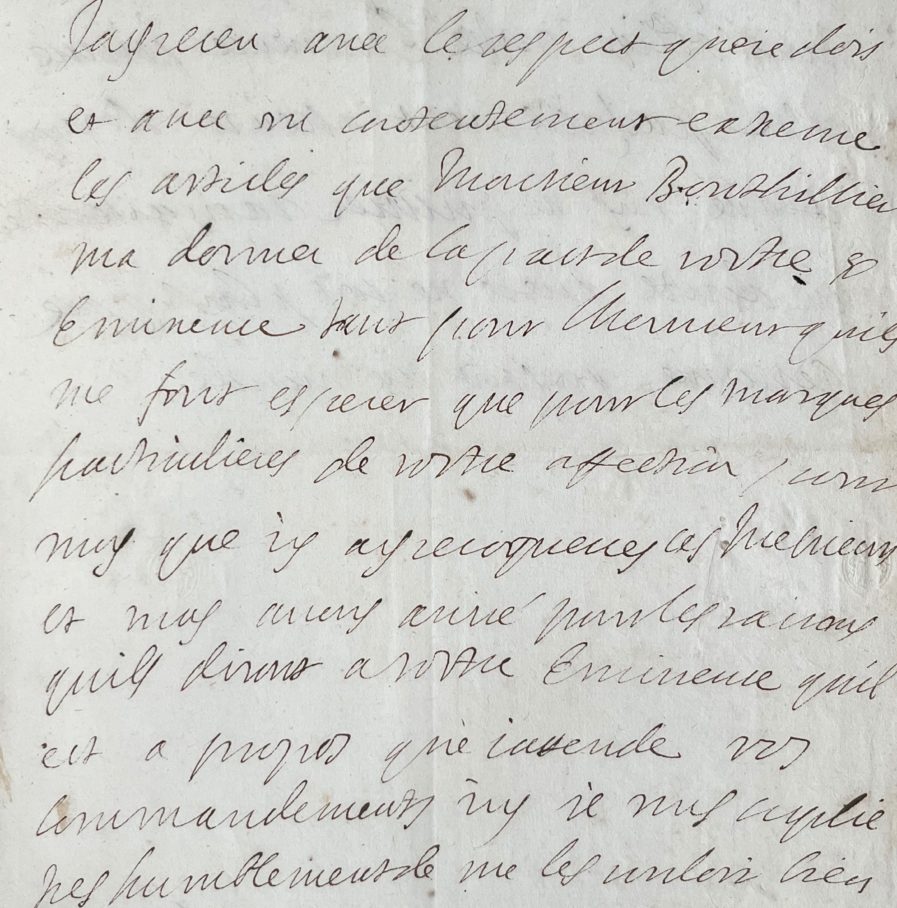 Jay receu avec le respect que ie dois
et avec un contentement extreme
les articles que Monsieur Bouthillier
ma donnez de la part de vostre
Eminence tant pour lhonneur quils
me font esperer que pour les marques
particulieres de vostre affection pour
moy que iy ay recognues ces Messieurs
et moy avons avisé pour les raisons
quils diront a vostre Eminence quil
est a propos que iattende vos
commandements icy ie vous suplie
tres humblement de me les vouloir bien